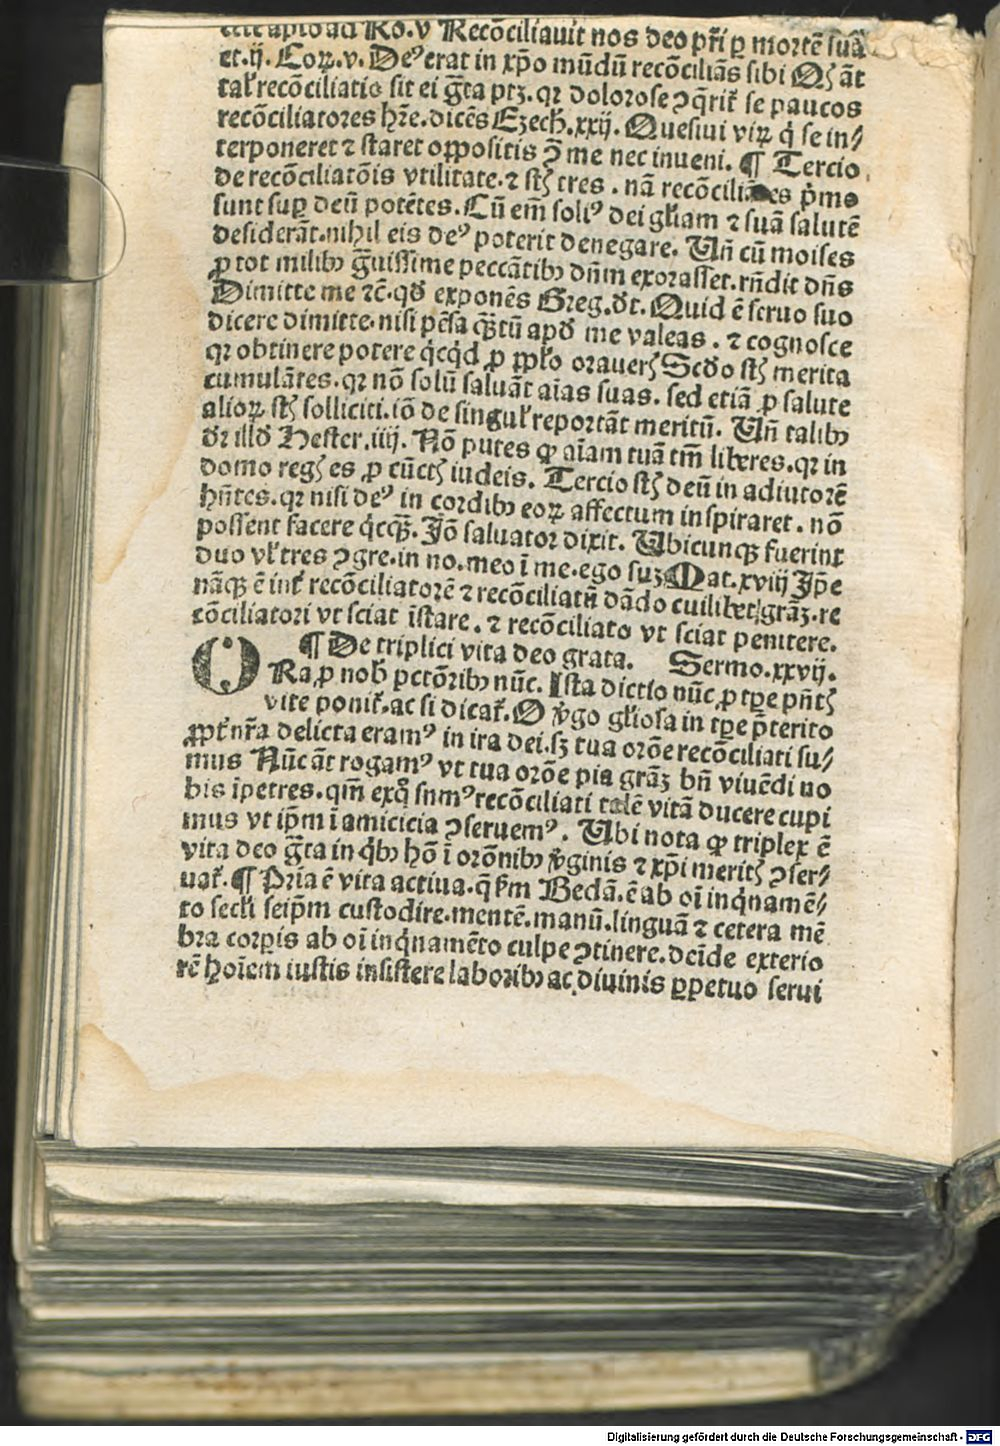 aplo ad Ro.v Recōciliauit nos deo pr̄i ꝑ mortē suā
et.ij. Coꝝ.v. De⁹ erat in xp̄o mūdū recōciliās sibi Qꝫ āt
tał recōciliatio sit ei gr̄ta ptꝫ.qꝛ dolorose ꝯq̄rit᷑ se paucos
recōciliatores hr̄e.dicēs Ezech̄.xxij. Quesiui viꝝ q̇ se in⸗
terponeret ⁊ staret oppositis ꝯ̄ me nec inueni. ¶ Tercio
de recōciliatōis vtilitate.⁊ st̄ꝫ tres . nā recōciliātes p̄mo
sunt suꝑ deū potētes. Cū em̄ soli⁹ dei gl̄iam ⁊ suā salutē
desiderāt.nihil eis de⁹ poterit denegare. Un̄ cū moises
ꝓ tot milibꝰ gͣuissime peccātibꝰ dn̄m exorasset.rn̄dit dn̄s
Dimitte me ⁊c̄.qd̄ exponēs Greg.dt̄. Quid ē seruo suo
dicere dimitte.nisi pēsa qͣ̄tū apd̄ me valeas . ⁊ cognosce
qꝛ obtinere potere q̇cq̇d ꝓ ppło oraueris Scd̄o st̄ꝫ merita
cumulātes.qꝛ nō solū saluāt aīas suas. sed etiā ꝓ salute
alioꝝ st̄ꝫ solliciti.iō de singuł reportāt meritū. Un̄ talibꝰ
dꝛ illd̄ Hester.iiij. Nō putes ꝙ aīam tuā tm̄ liberes.qꝛ in
domo regꝫ es ꝓ cūctꝫ iudeis. Tercio st̄ꝫ deū in adiutorē
hn̄tes.qꝛ nisi de⁹ in cordibꝰ eoꝝ affectum inspiraret . nō
possent facere q̇cqͣ̄. Iō saluator dixit. Ubicunqꝫ fuerint
duo vł tres ꝯgre.in no.meo ī me.ego suꝫ Mat.xviij Ip̄e
nāqꝫ ē int᷑ recōciliatorē ⁊ recōciliatū dādo cuilibet grāꝫ.re
cōciliatori vt sciat īstare . ⁊ recōciliato vt sciat penitere.
¶ De triplici vita deo grata. Sermo.xxvij.
ORa ꝓ nob̄ pctōribꝰ nūc. Ista dictio nūc ꝓ tꝑe pn̄tꝫ
vite ponit᷑.ac si dicat᷑. O v̇go gl̄iosa in tꝑe p̄terito
ꝓpt᷑ nr̄a delicta eram⁹ in ira dei.sꝫ tua orōe recōciliati su⸗
mus Nūc āt rogam⁹ vt tua orōe pia grāꝫ bn̄ viuēdi no
bis īpetres.qm̄ exq̊ sum⁹ recōciliati talē vitā ducere cupi
mus vt ip̄m ī amicicia ꝯseruem⁹ . Ubi nota ꝙ triplex ē
vita deo gͣta in q̇bꝰ hō ī orōnibꝰ v̇ginis ⁊ xp̄i meritꝫ ꝯser⸗
uat᷑.¶ Pria ē vita actiua.q̄ ẜm Bedā.ē ab oī inq̇namē⸗
to secłi seip̄m custodire.mentē.manū.linguā ⁊ cetera mē
bra corꝑis ab oī inq̇namēto culpe ꝯtinere.deīde exterio
rē hoīem iustis insistere laboribꝰ ac diuinis ꝑpetuo serui
Digitalisierung gefördert durch die Deutsche Forschungsgemeinschaft - DFG